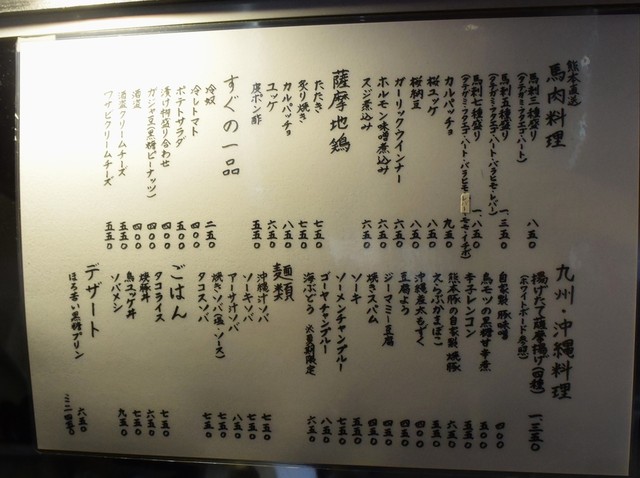 熊本直送
馬肉料理
馬刺三種盛り 八五〇
(タテガミ・フタエゴ・ハート)
馬刺五種盛り 一、三五〇
(タテガミ・フタエゴ・ハート・バラヒモ・レバー)
馬刺七種盛り 一、八五〇
(タテガミ・フタエゴ・ハート・バラヒモ・レバー・モモ・イチボ)
カルパッチョ 九五〇
桜ユッケ 八五〇
桜納豆 八五〇
ガーリックウインナー 六五〇
ホルモン味噌煮込み 六五〇
スジ煮込み 六五〇
薩摩地鶏
たたき 七五〇
炙り焼き 七五〇
カルパッチョ 八五〇
ユッケ 六五〇
皮ポン酢 五五〇
すぐの一品
冷奴 二五〇
冷しトマト 四〇〇
ポテトサラダ 五〇〇
漬け物盛り合わせ 四〇〇
ガジャ豆(黒糖ピーナッツ) 四〇〇
酒盗 四〇〇
酒盗クリームチーズ 五五〇
ワサビクリームチーズ 五五〇
九州・沖縄料理
揚げたて薩摩揚げ(四種) 一、三五〇
(ホワイトボード参照)
自家製 豚味噌 四〇〇
鳥モツの黒糖甘辛煮 五〇〇
辛子レンコン 五五〇
熊本豚の自家製 焼豚 六五〇
えらぶかまぼこ 五五〇
沖縄産太もずく 四〇〇
豆腐よう 四〇〇
ジーマミー豆腐 四五〇
焼きスパム 四五〇
ソーキ 五五〇
ソーメンチャンプルー 七五〇
ゴーヤーチャンプルー 八五〇
海ぶどう ※夏期限定 六五〇
麺類
沖縄汁ソバ 七五〇
ソーキソバ 七五〇
アーサ汁ソバ 八五〇
焼きソバ(塩・ソース) 七五〇
タコスソバ 七五〇
ごはん
タコライス 七五〇
焼豚丼 六五〇
鳥ユッケ丼 七五〇
ソバメシ 九五〇
デザート
ほろ苦い黒糖プリン 六五〇
ミニ四五〇